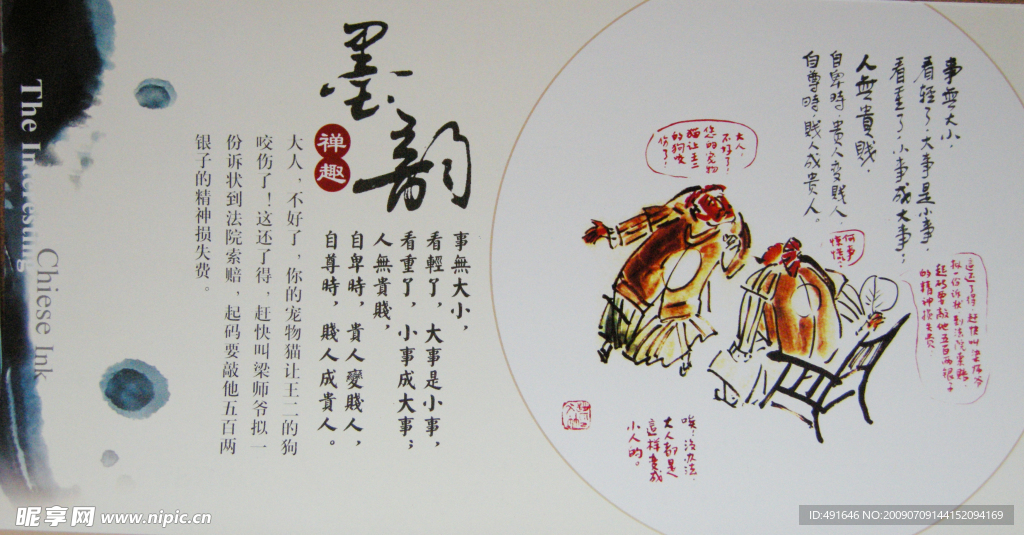 事無大小，
看輕了，大事是小事，
看重了，小事成大事；
人無貴賤，
自卑時，貴人變賤人，
自尊時，賤人成貴人。
大人，不好了，
您的宠物
猫让王二
的狗咬
伤了！
何事
慌慌？
這还了得，赶快叫梁师爷
拟一份诉状到法院索赔，
起码要敲他五百两银子
的精神损失费。
唉，没办法，
大人都是
這样变成
小人的。
墨韵
禅趣
事無大小，
看輕了，大事是小事，
看重了，小事成大事；
人無貴賤，
自卑時，貴人變賤人，
自尊時，賤人成貴人。
大人，不好了，你的宠物猫让王二的狗
咬伤了！这还了得，赶快叫梁师爷拟一
份诉状到法院索赔，起码要敲他五百两
银子的精神损失费。
The Interesning
Chiese Ink
昵享网 www.nipic.cn
ID:491646 NO:20090709144152094169